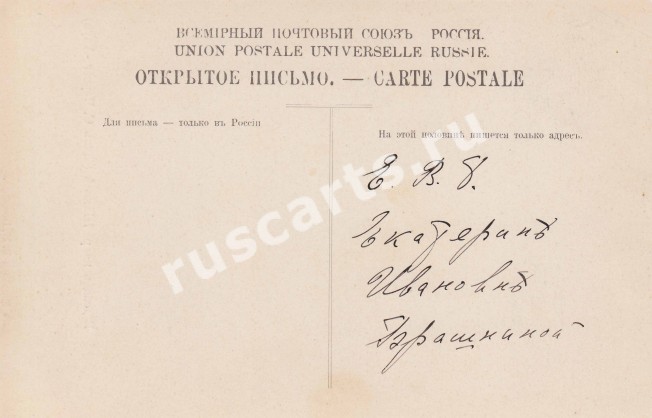 ВСЕМІРНЫЙ ПОЧТОВЫЙ СОЮЗЪ РОССІЯ.
UNION POSTALE UNIVERSELLE RUSSIE.
ОТКРЫТОЕ ПИСЬМО. — CARTE POSTALE
Для письма — только въ Россіи
На этой половинѣ пишется только адресъ.
Е. В. Б.
Екатеринѣ
Ивановнѣ
ruscarts.ru